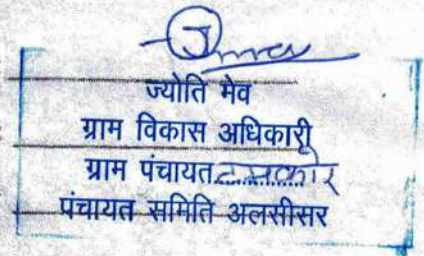 ज्योति मेव
ग्राम विकास अधिकारी
ग्राम पंचायत टमकोर
पंचायत समिति अलसीसर